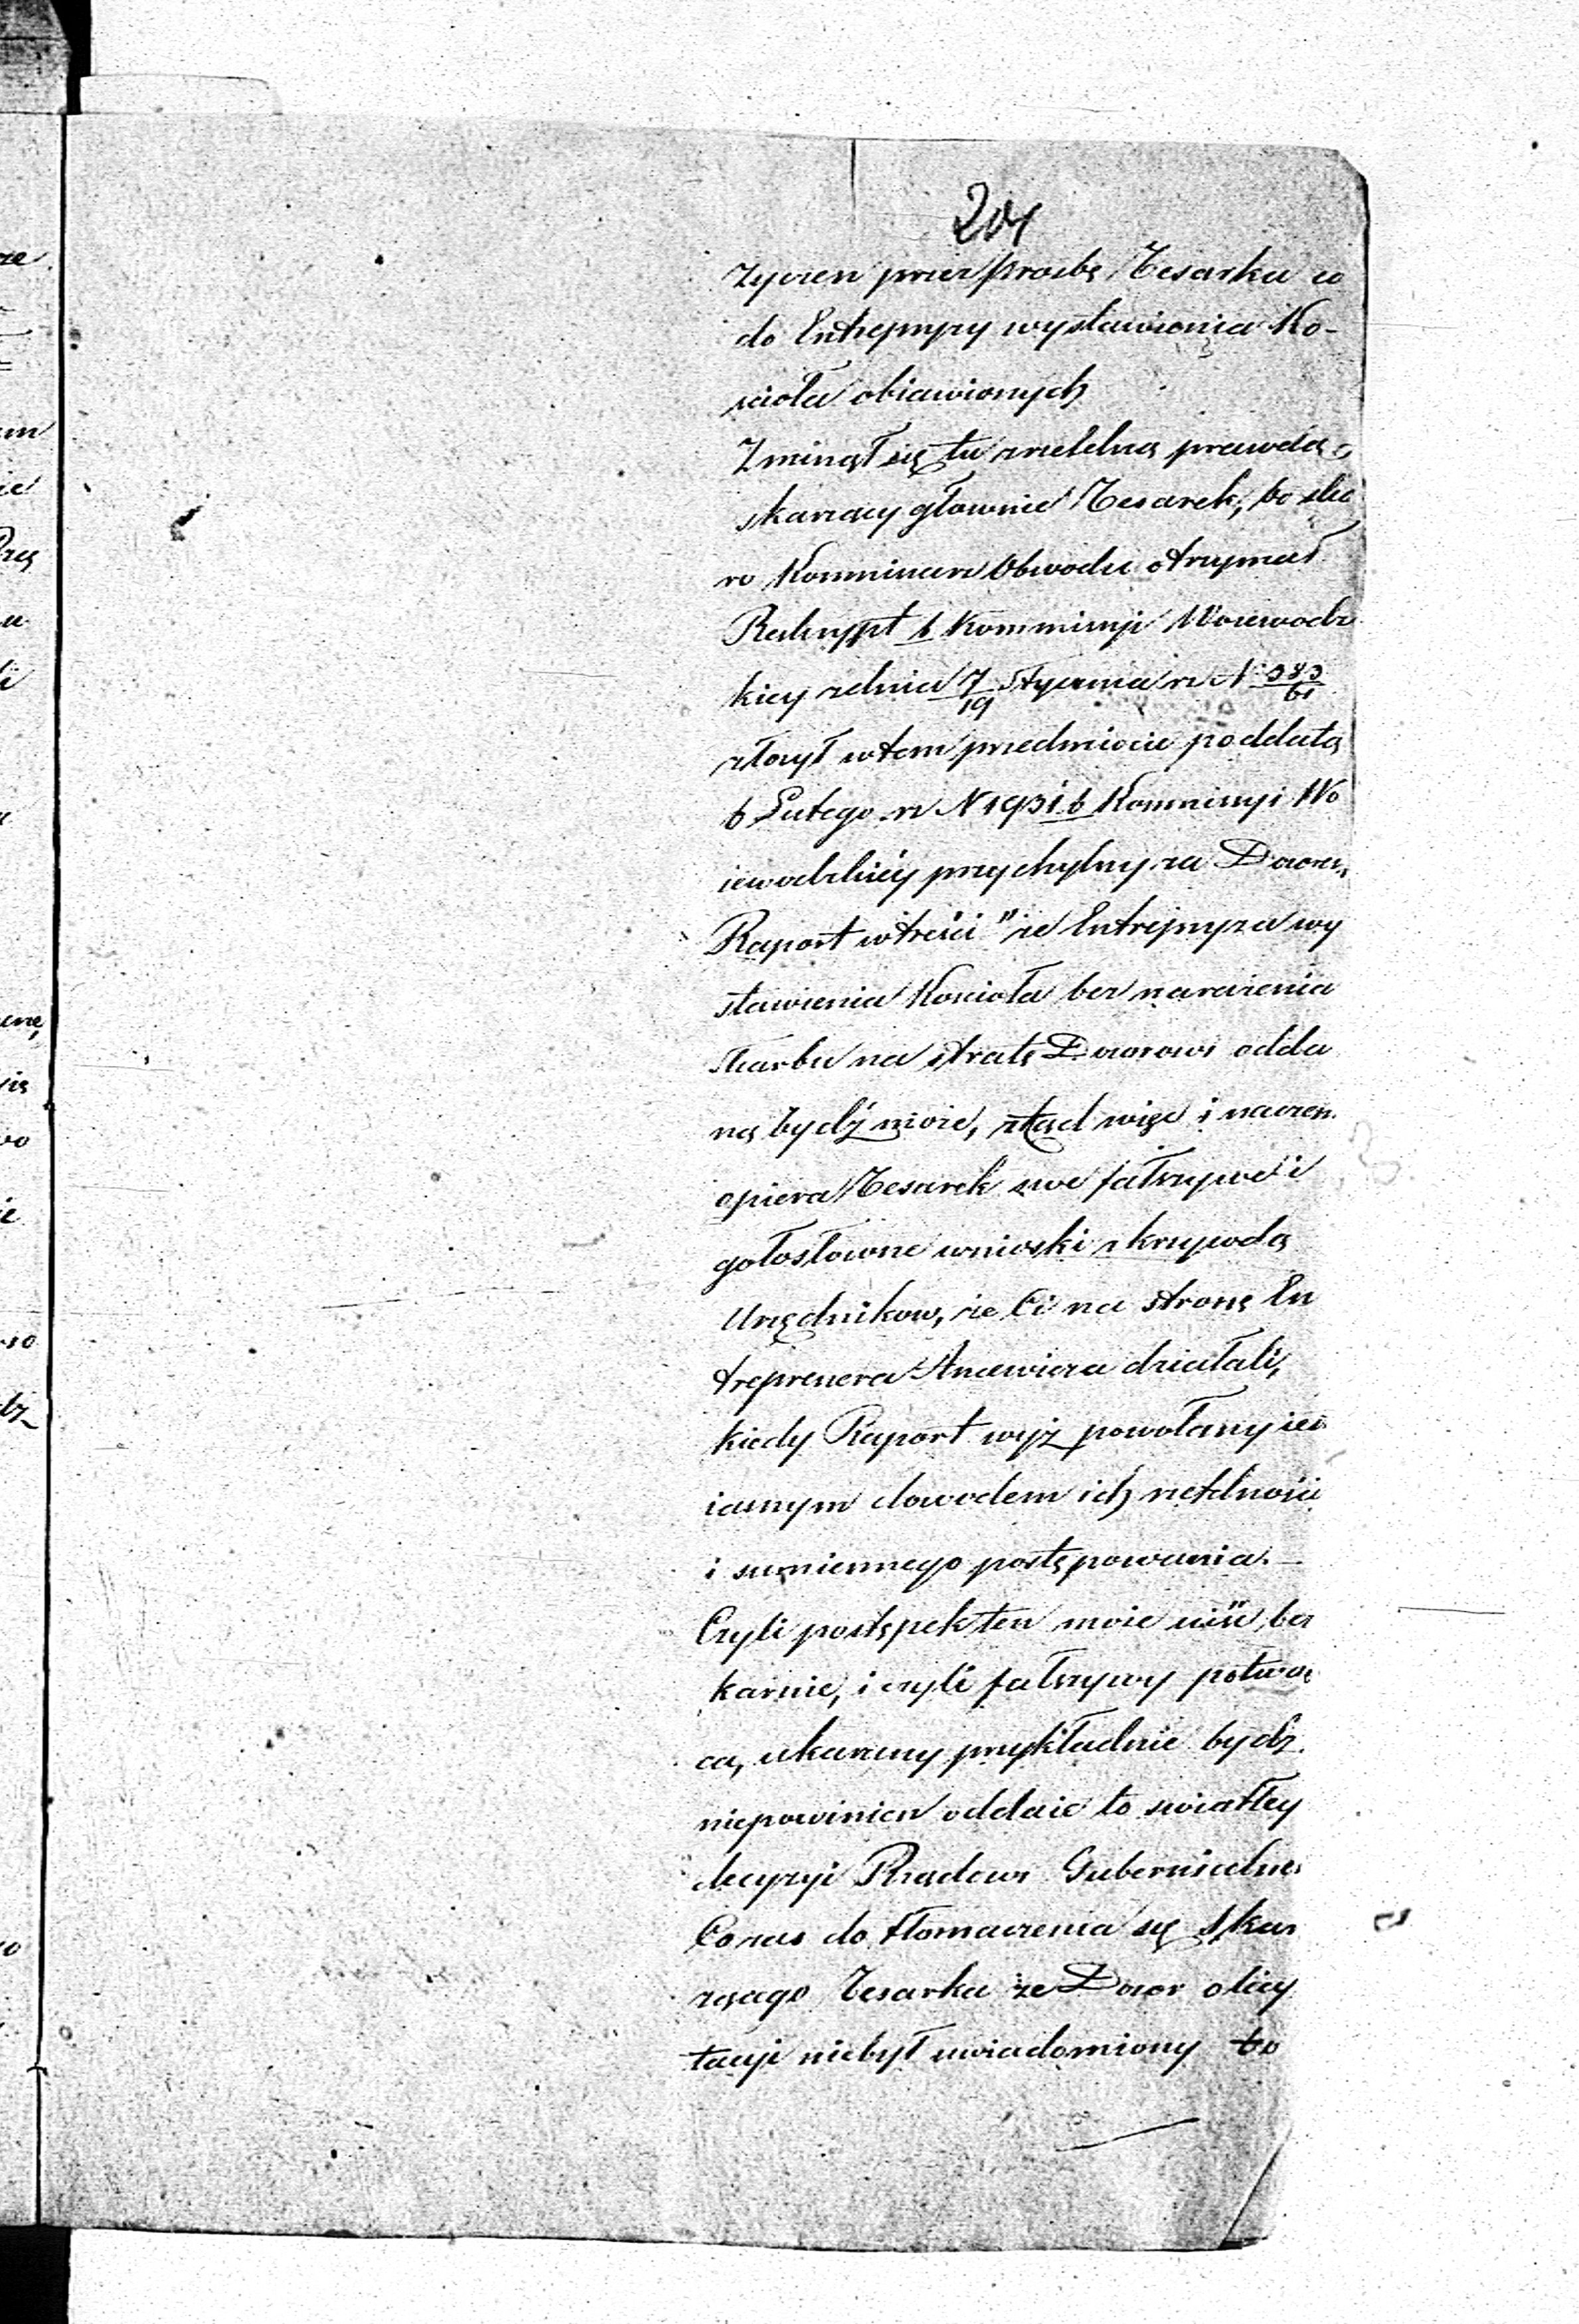 204
życzeń przez prozbę Tesarka co
do Entrepryzy wystawienia Ko-
ścioła obiawionych
Zminął się tu z rzetelną prawdą
skarzący głownie Tesarek, bo sko
ro Kommissarz Obwodu otrzymał
Reskrypt b Kommissyi Woiewodz
kiey z dnia 7/19 Stycznia rz N 383/61
złożył w tem przedmiocie pod datą
6 Lutego rz N 1931 b Kommissyi Wo
iewodzkiéy przychylny za Dworem
Raport w treści "że Entrepryza wy
stawienia Kościoła bez narażenia
skarbu na stratę Dworowi odda
ną bydź może, ztąd więc i naczem
opiera Tesarek swe fałszywe i
gołosłowne wnioski z krzywdą
Urzędnikow, że Ci na stronę En
treprenera działali,
kiedy Raport wyż powołany iest
iasnym dowodem ich rzetelności
i sumiennego postępowania. —
Czyli postępek ten może uiść bez
karnie, i czyli fałszywy potwar
ca, ukarany przykładnie bydz
niepowinien oddaie to swiatłey
decyzyi Rządowi Gubernialne
Co zas do tłomaczenia się skar
zącego Tesarka że Dwor o licy
tacyi niebył uwiadomiony to